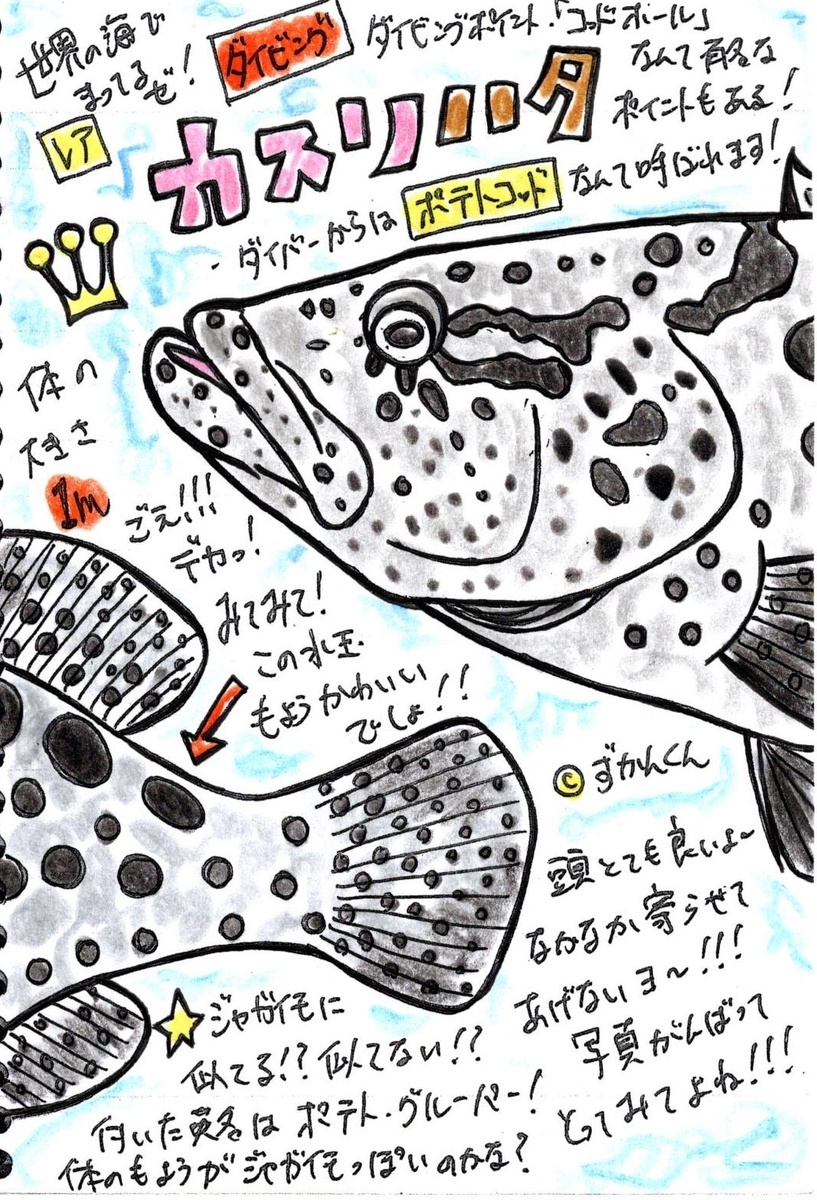 世界の海で
まってるゼ！
ダイビング
ダイビングポイント・「コッドホール」
なんて有名な
ポイントもある！
レア
カスリハタ
ダイバーからは ポテトコッド なんて呼ばれます！
体の
大きさ
1m
ごえ!!!
デカっ！
みてみて！
この水玉
もようかわいい
でしょ!!
© ずかんくん
頭とても良いよ〜
なかなか寄らせて
あげないヨ〜!!!
写真がんばって
とってみてよね!!!
ジャガイモに
似てる!? 似てない!?
付いた英名は ポテト・グルーパー！
体のもようがジャガイモっぽいのかな？